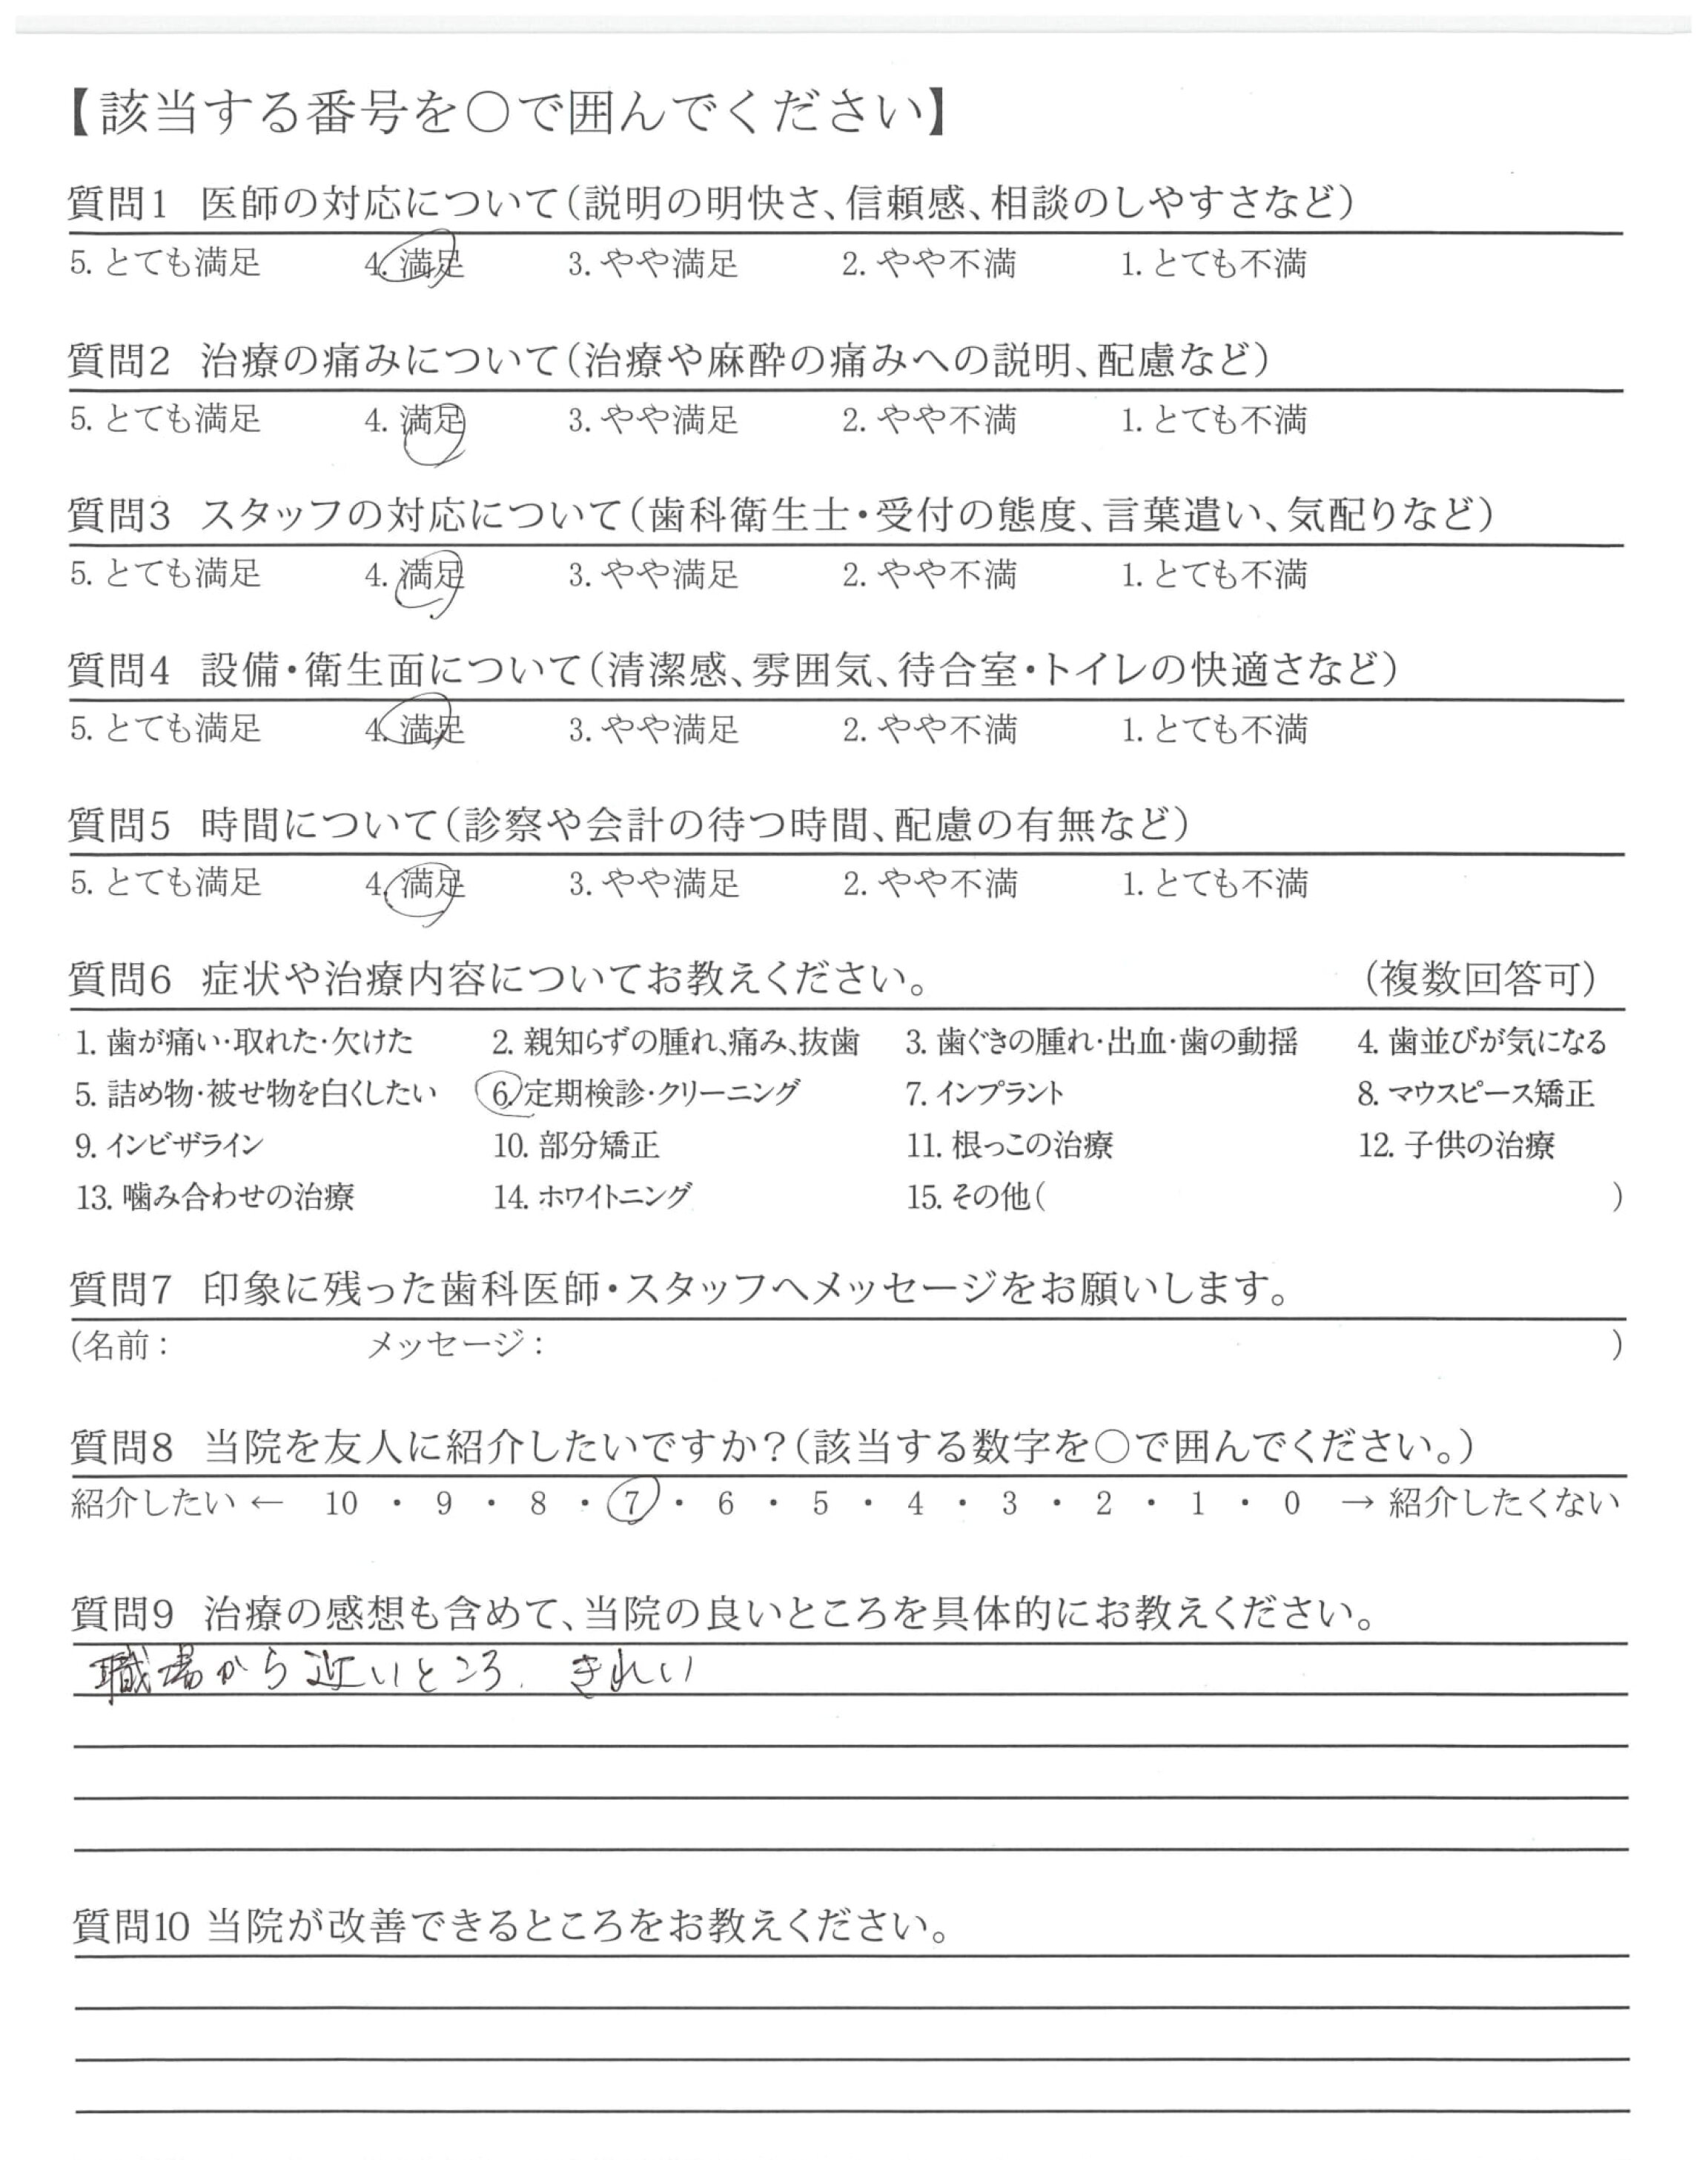 【該当する番号を○で囲んでください】
質問1 医師の対応について(説明の明快さ、信頼感、相談のしやすさなど)
5. とても満足 4. 満足 3. やや満足 2. やや不満 1. とても不満
質問2 治療の痛みについて(治療や麻酔の痛みへの説明、配慮など)
5. とても満足 4. 満足 3. やや満足 2. やや不満 1. とても不満
質問3 スタッフの対応について(歯科衛生士・受付の態度、言葉遣い、気配りなど)
5. とても満足 4. 満足 3. やや満足 2. やや不満 1. とても不満
質問4 設備・衛生面について(清潔感、雰囲気、待合室・トイレの快適さなど)
5. とても満足 4. 満足 3. やや満足 2. やや不満 1. とても不満
質問5 時間について(診察や会計の待つ時間、配慮の有無など)
5. とても満足 4. 満足 3. やや満足 2. やや不満 1. とても不満
質問6 症状や治療内容についてお教えください。 (複数回答可)
1. 歯が痛い・取れた・欠けた 2. 親知らずの腫れ、痛み、抜歯 3. 歯ぐきの腫れ・出血・歯の動揺 4. 歯並びが気になる
5. 詰め物・被せ物を白くしたい 6. 定期検診・クリーニング 7. インプラント 8. マウスピース矯正
9. インビザライン 10. 部分矯正 11. 根っこの治療 12. 子供の治療
13. 噛み合わせの治療 14. ホワイトニング 15. その他( )
質問7 印象に残った歯科医師・スタッフへメッセージをお願いします。
(名前: メッセージ: )
質問8 当院を友人に紹介したいですか?(該当する数字を○で囲んでください。)
紹介したい ← 10 ・ 9 ・ 8 ・ 7 ・ 6 ・ 5 ・ 4 ・ 3 ・ 2 ・ 1 ・ 0 → 紹介したくない
質問9 治療の感想も含めて、当院の良いところを具体的にお教えください。
職場から近いところ. きれい
質問10 当院が改善できるところをお教えください。